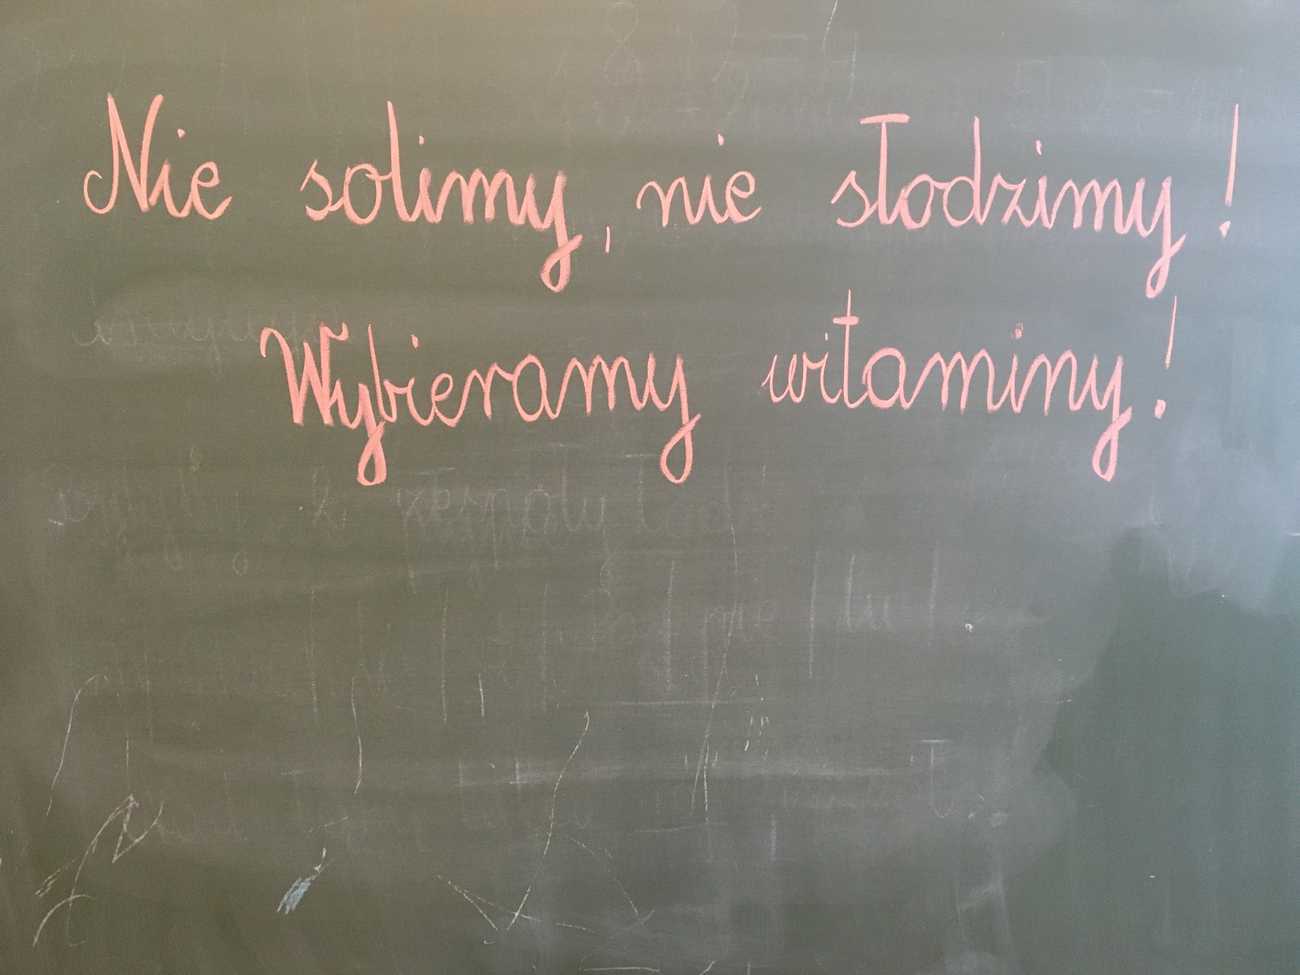 Nie solimy, nie słodzimy!
Wybieramy witaminy!